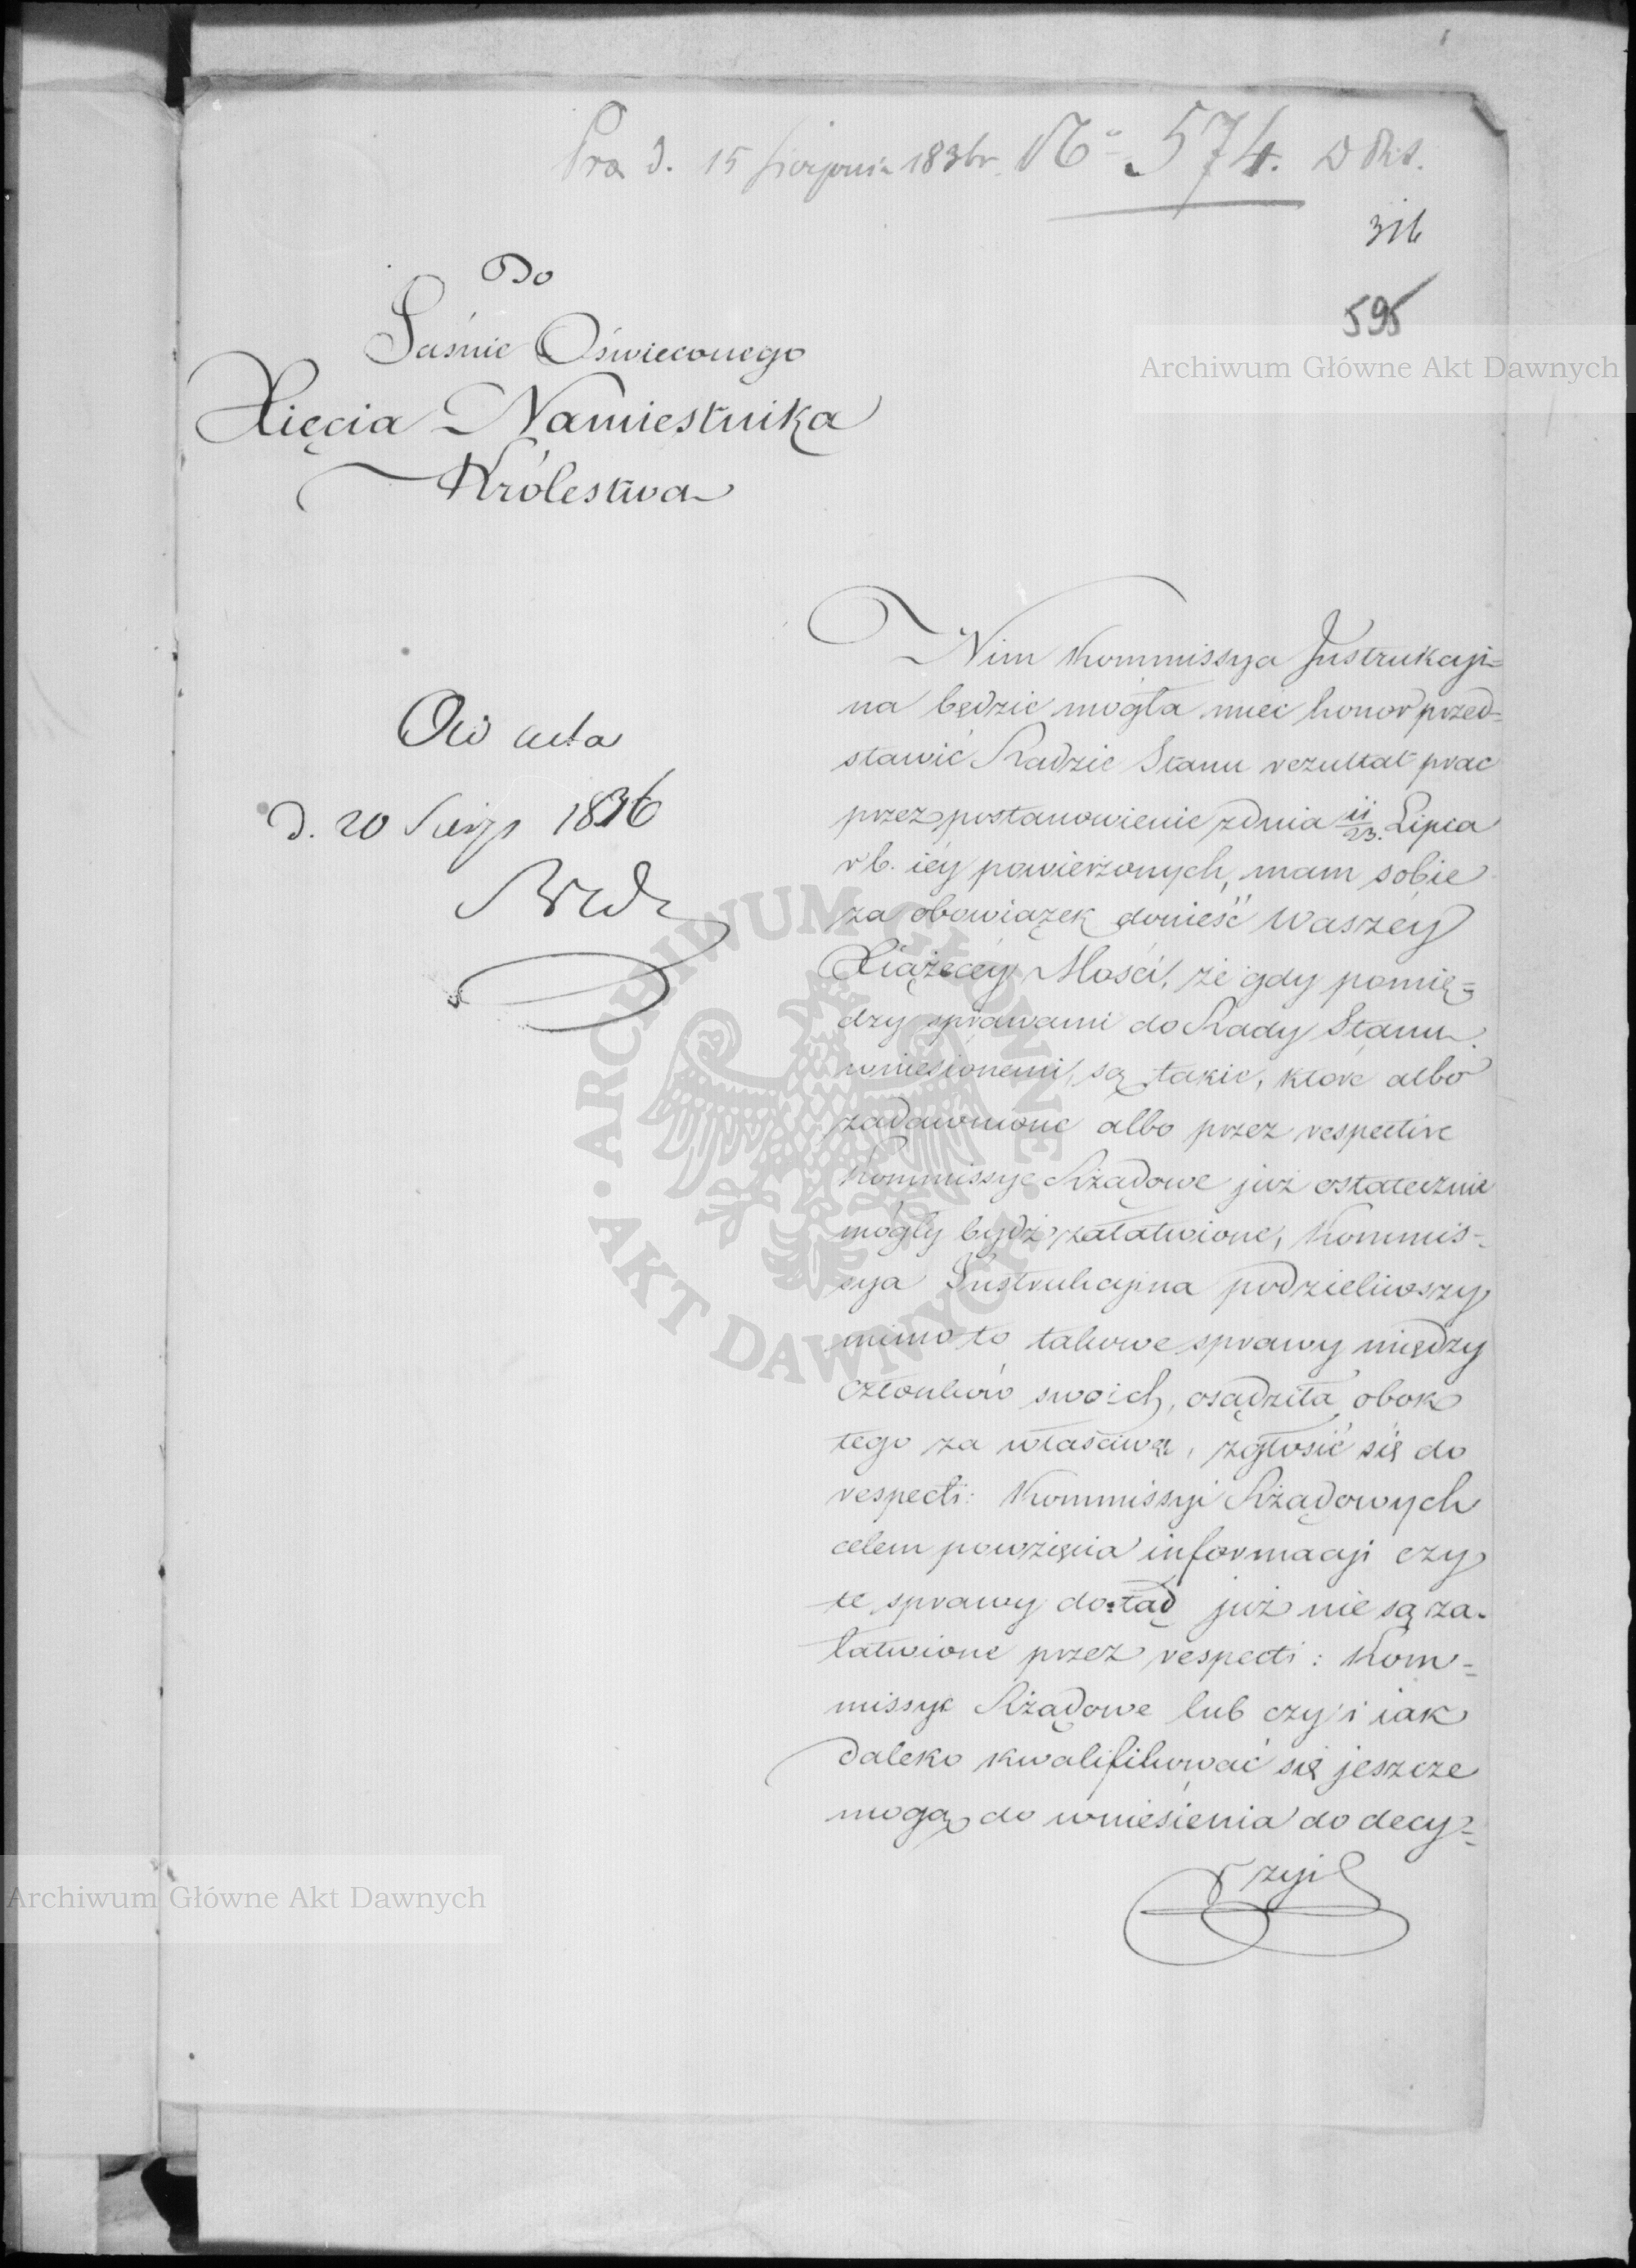 Pra d. 15 Sierpnia 1836 r. No 574. D Rt S.
316
595
Archiwum Główne Akt Dawnych
Do
Jaśnie Oświeconego
Xięcia Namiestnika
Królestwa
Nim Kommissya Instrukcyi=
na będzie mogła mieć honor przed=
stawić Radzie Stanu rezultat prac
przez postanowienie z dnia 11/23. Lipca
r b. iéy powierzonych, mam sobie
za obowiązek donieść Waszéy
Xiążęcéy Mości, że gdy pomię=
dzy sprawami do Rady Stanu
wniesionemi, są takie, które albo
zadawnione albo przez respective
Kommissye Rządowe już ostatecznie
mogły bydź załatwione, Kommis=
sya Instrukcyjna podzieliwszy
mimo to takowe sprawy między
Członków swoich, osądziła obok
tego za właściwą, zgłosić się do
respecti: Kommissyi Rządowych
celem powzięcia informacyi czy
te sprawy dotąd już nie są za=
łatwione przez respecti: Kom=
missye Rządowe lub czy i iak
daleko kwalifikować się jeszcze
mogą do wniesienia do decy=
zyi
Ad acta
d. 20 Sierp 1836
ARCHIWUM GŁÓWNE • AKT DAWNYCH •
Archiwum Główne Akt Dawnych